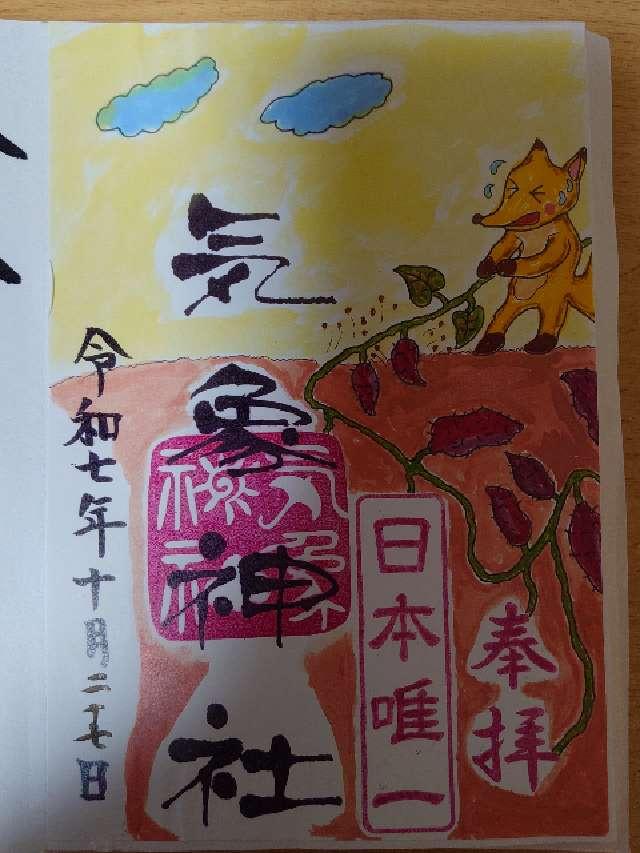 奉拝
日本唯一
気象神社
令和七年十月二十七日